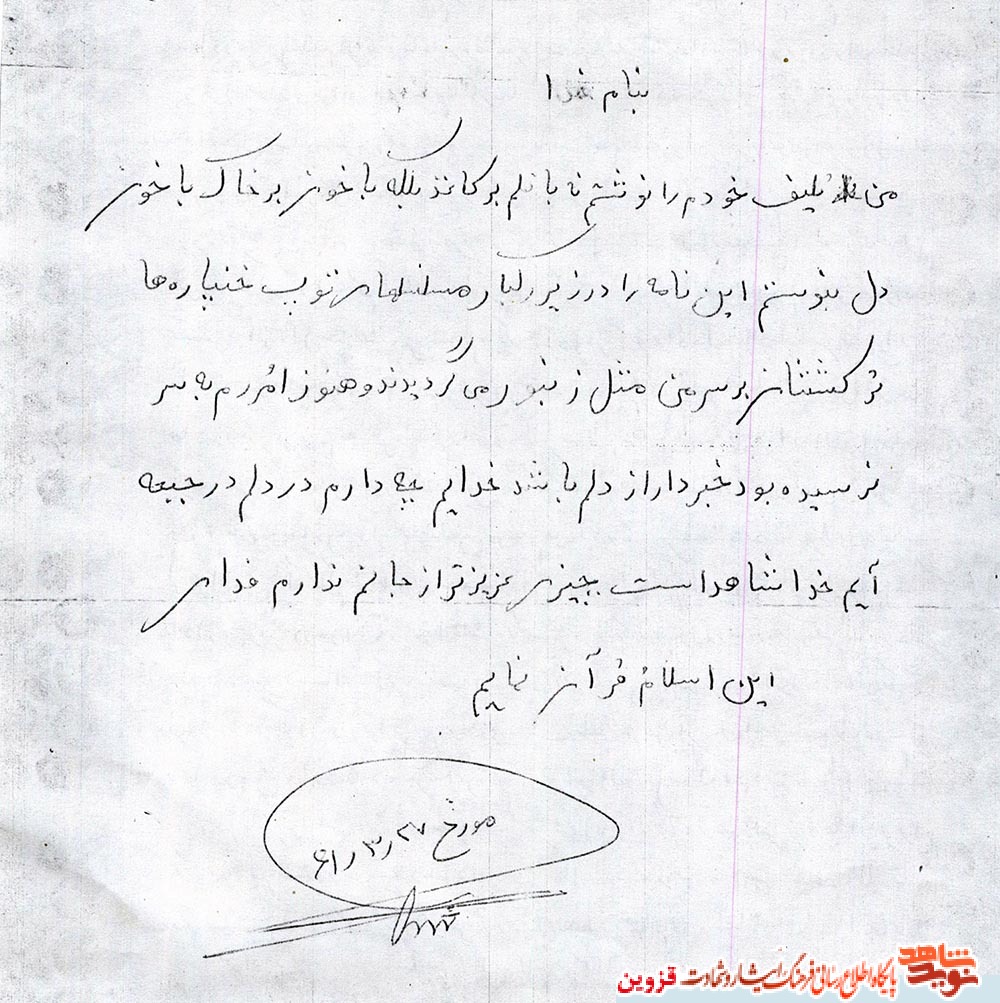 بنام خدا
من تکلیف خودم را نوشتم نه با قلم بر کاغذ بلکه با خون بر خاک با خون
دل بنوشتم این نامه را در زیر رگبار مسلسلهای توپ خنپاره‌ها
ترکششان بر سر من مثل زنبور می گردیدند و هنوز امُررم به سر
نرسیده بود خبردار از دلم باشد خدایم چه دارم در دلم در جبهه
آیم خدا شاهد است چیزی عزیزتر از جانم ندارم فدای
این اسلام قرآن نمایم
مورخ ۲۷ر۳ر۶۱
نوید شاهد پایگاه اطلاع رسانی فرهنگ ایثار و شهادت قزوین